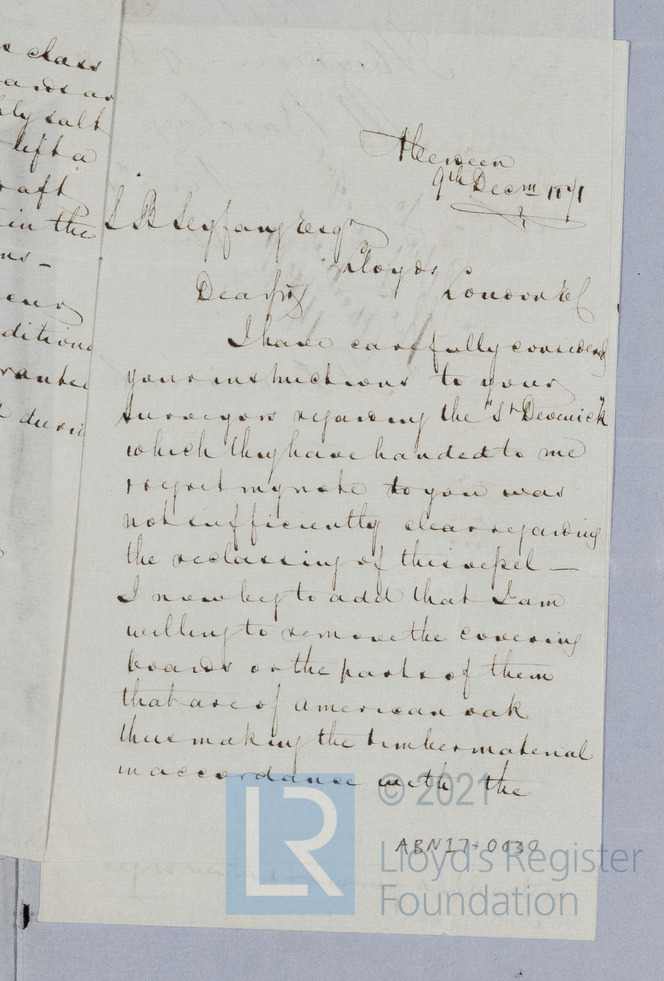 e class
ards as
hly salt
left a
raft
in the
ms -
ditions
Aberdeen
9th Decm 1871
S B Seyfang Esqr
Lloyds London EC
Dear Sir
I have carefully considered
your instructions to your
Surveyors regarding the "St Devenick"
which they have handed to me
regret my note to you was
not sufficiently clear regarding
the reclassing of this vessel —
I now beg to add that I am
willing to remove the covering
boards or the parts of them
that are of American oak
thus making the timber material
in accordance with the
LR
© 2021
ABN17-0039
Lloyd's Register
Foundation